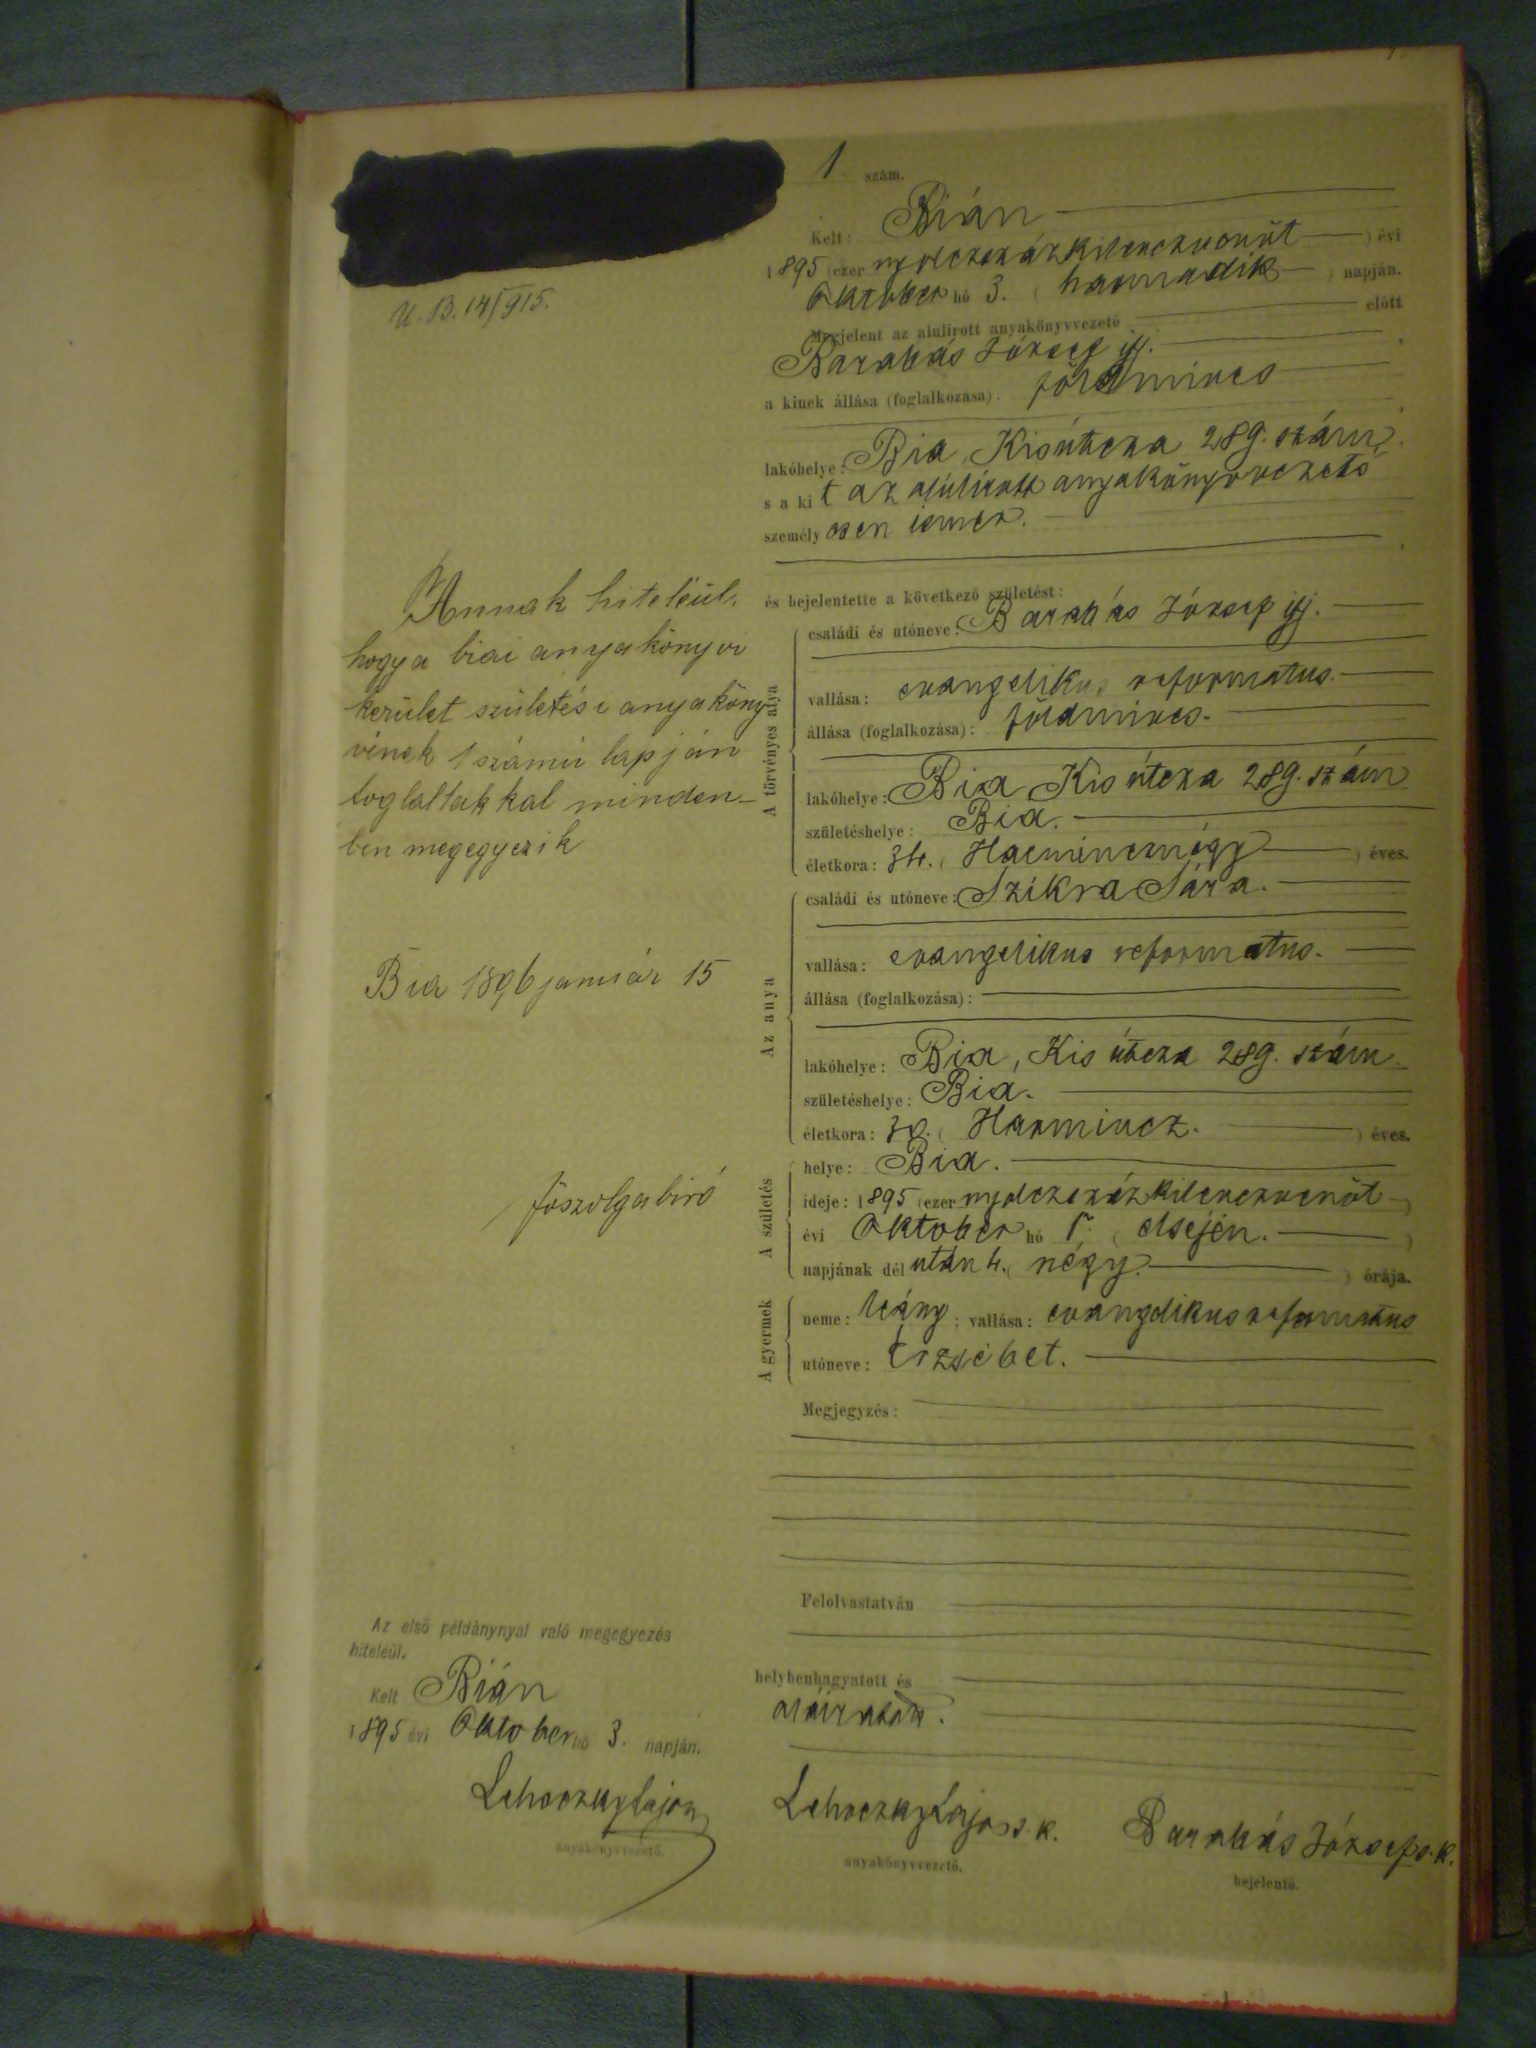 1. szám.
Kelt: Bián
1895 (ezer nyolczszázkilenczvenöt) évi
Október hó 3. (harmadik) napján.
U. B. 14/915.
Megjelent az alulírott anyakönyvvezető előtt
Barabás József ifj.
a kinek állása (foglalkozása): földmives
lakóhelye: Bia, Kisútcza 289. szám,
s a kit az alúlírott anyakönyvvezető
személyesen ismer.
és bejelentette a következő születést:
A törvényes atya
családi és utóneve: Barabás József ifj.
vallása: evangelikus reformatus.
állása (foglalkozása): földmives.
lakóhelye: Bia, Kis útcza 289. szám
születéshelye: Bia.
életkora: 34. (Harmincznégy) éves.
Az anya
családi és utóneve: Szikra Sára.
vallása: evangelikus reformatus.
állása (foglalkozása):
lakóhelye: Bia, Kis útcza 289. szám
születéshelye: Bia.
életkora: 30. (Harmincz.) éves.
A születés
helye: Bia.
ideje: 1895 (ezer nyolczszázkilenczvenöt)
évi Oktober hó 1. (elsején.)
napjának dél után 4. (négy.) órája.
A gyermek
neme: leány; vallása: evangelikus reformatus
utóneve: Erzsébet.
Megjegyzés:
Felolvastatván
helybenhagyatott és
aláíratott.
Lehoczky Lajos s. k.
anyakönyvvezető.
Barabás József s. k.
bejelentő.
Annak hiteléül,
hogy a biai anyakönyvi
kerület születési anyaköny-
vének 1 számú lapján
foglaltakkal minden-
ben megegyezik
Bia 1896 január 15
főszolgabiró
Az első példánynyal való megegyezés
hiteléül.
Kelt Bián
1895 évi Oktober hó 3. napján.
Lehoczky Lajos
anyakönyvvezető.